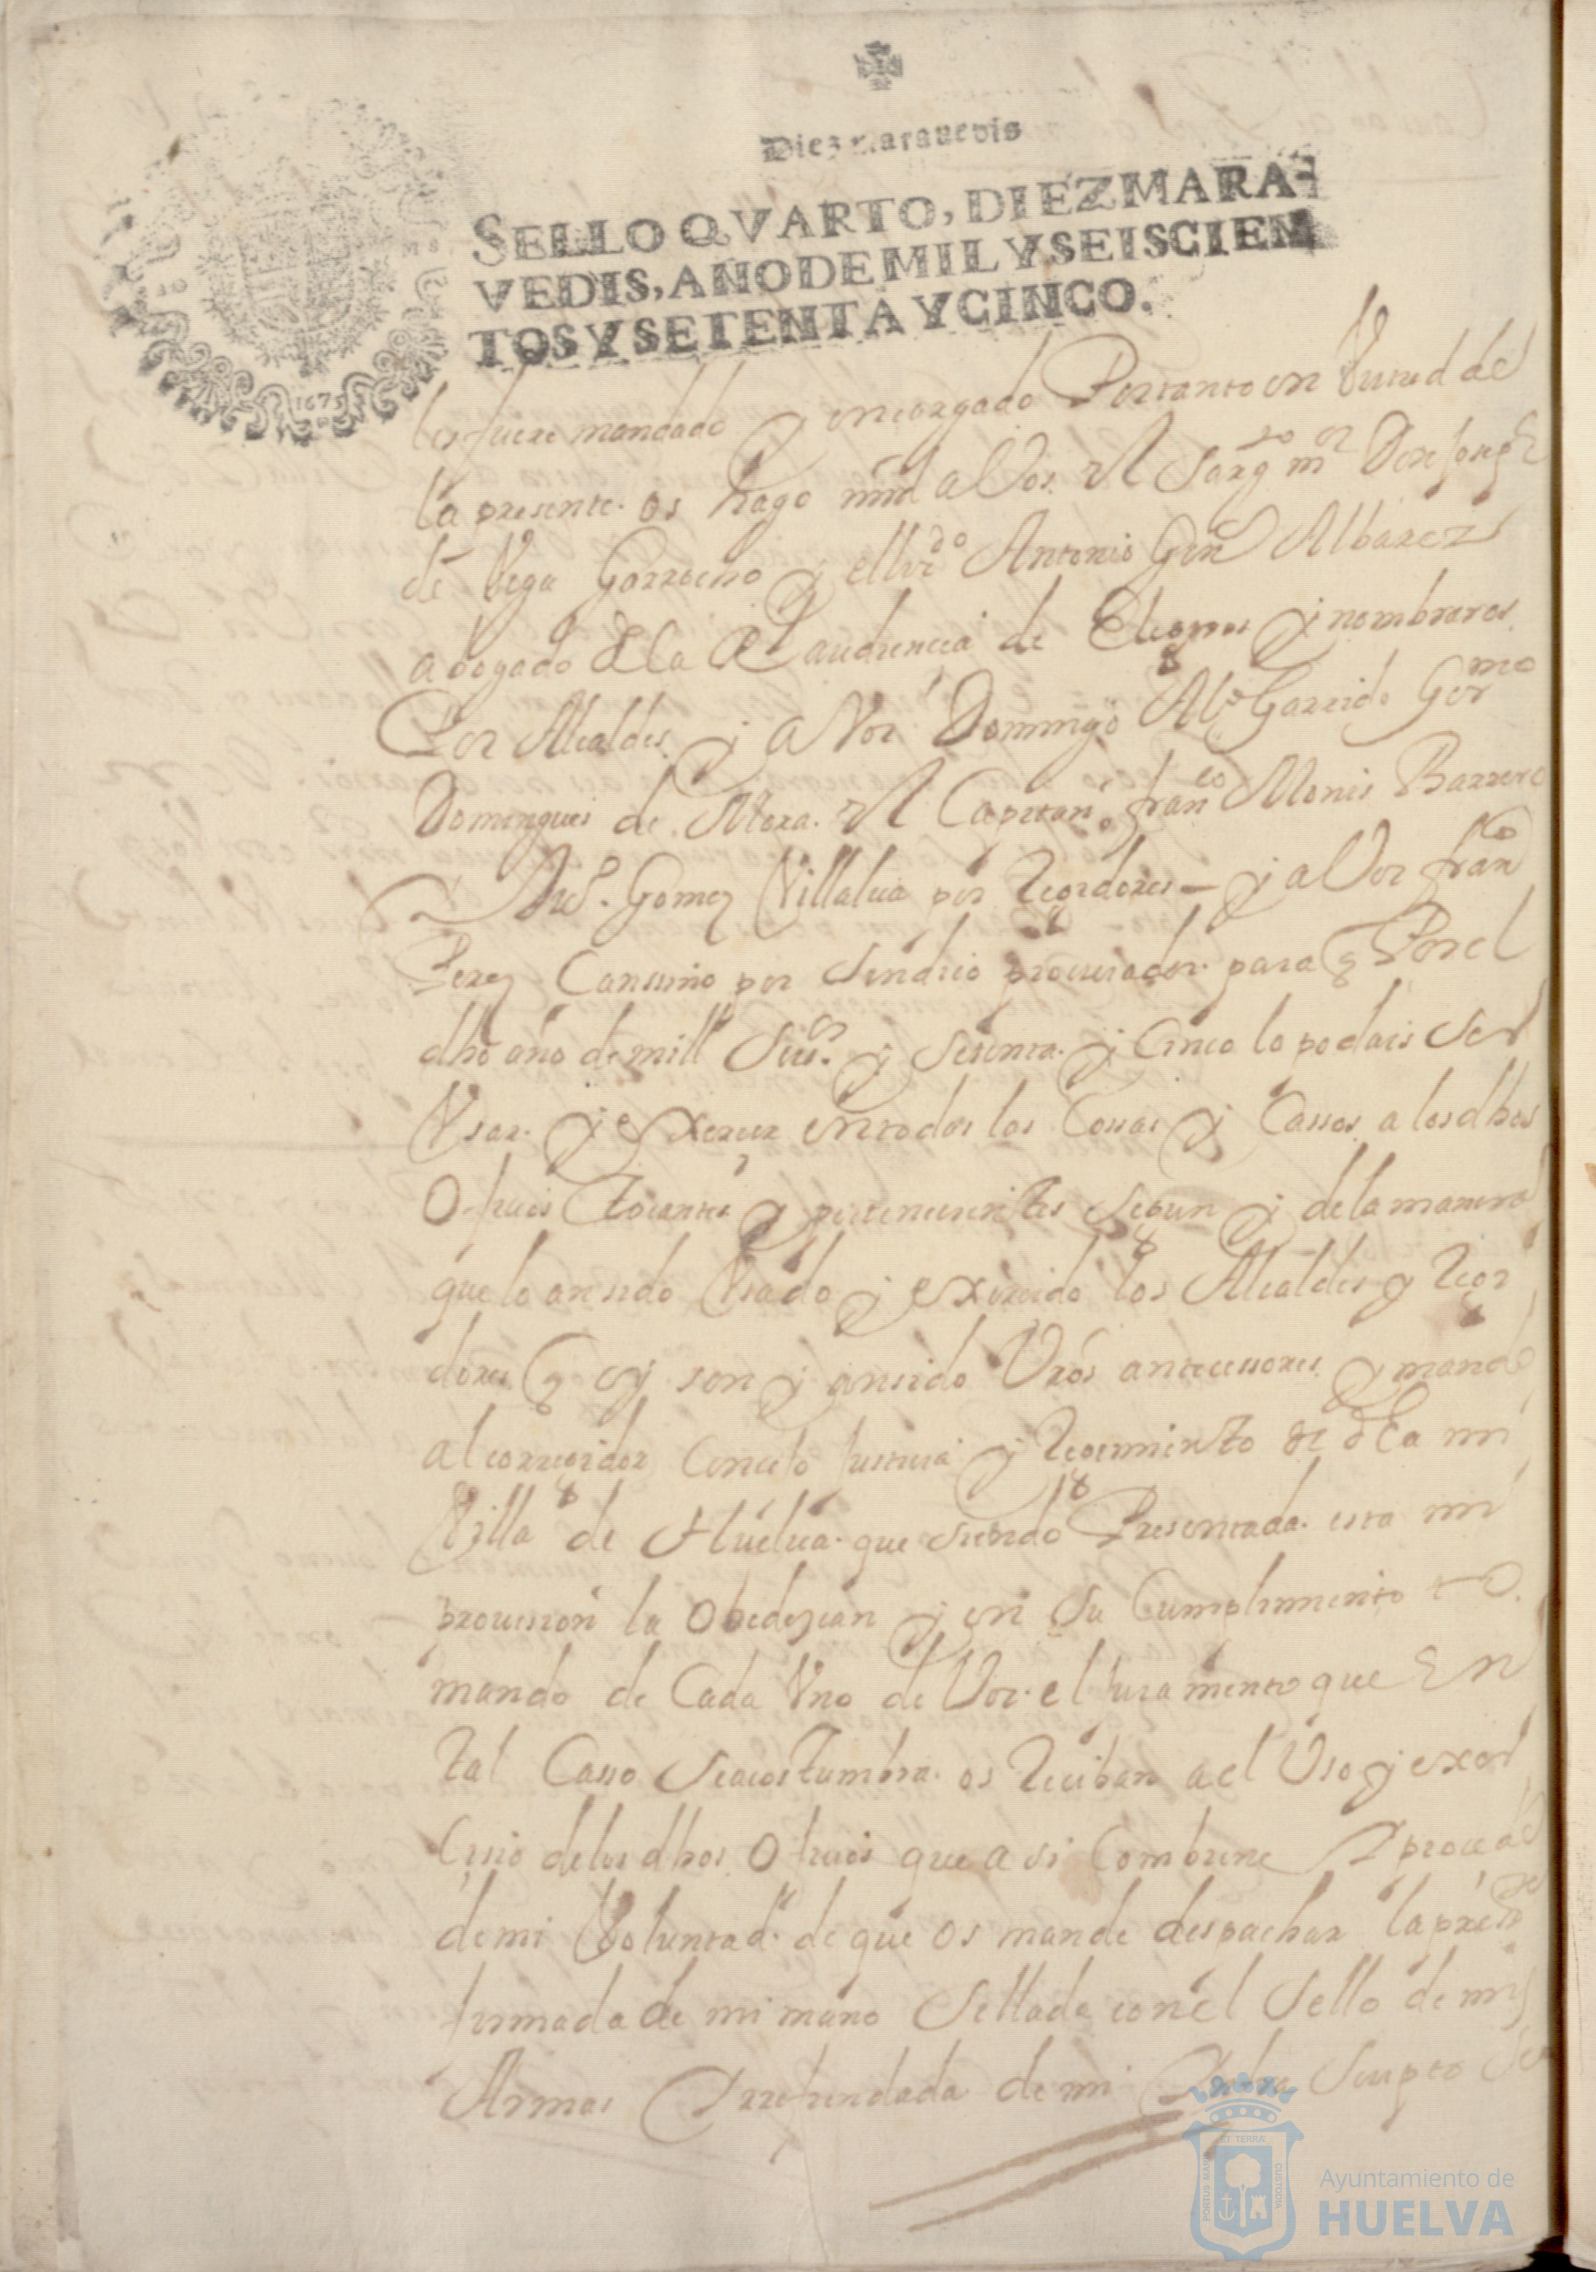 Diez marauedis
SELLO QVARTO, DIEZ MARA-
VEDIS, AÑO DE MIL Y SEISCIEN
TOS Y SETENTA Y CINCO.
1675
les fuere mandado y encargado Portanto en Virtud de
la presente os hago mrd a Vos el Sargto mor Don Joseph
de Vega Garrocho y el lizdo Antonio Gon Albarez
abogado de la Rl audiencia de elegiros y nombraros
Por Alcaldes y a Vos Domingo Alo Garrido Germo
Domingues de Mora el Capitan franco Monis Barrero
Gomez Villalua por Regidores y a Vos franco
Perez Cansino por Sindico procurador para q Por el
dho año de mill Seisos y Setenta y Cinco lo podais Ser
Usar y exercer en todas las Cossas y Cassos a los dhos
Ofiçios tocantes y pertenecientes Segun y de la manera
que lo an sido Usado y exercido los Alcaldes y Regi
dores q oy son y an sido Vros antecessores y mando
al corregidor Concejo Justicia y Regimiento de la mi
Villa de Huelua que siendo Presentada esta mi
prouision la Obedezcan y en Su Cumplimiento to
mando de Cada Uno de Vos el juramento que En
tal Casso Se acostumbra os Reciban a el Uso y exer
cisio de los dhos Ofiçios que a si Combiene y procede
de mi Voluntad de que os mande despachar la preste
firmada de mi mano Sellada con el Sello de mis
Armas y rrefrendada de mi
ET TERRÆ
PORTUS MARIS
CUSTODIA
Ayuntamiento de
HUELVA